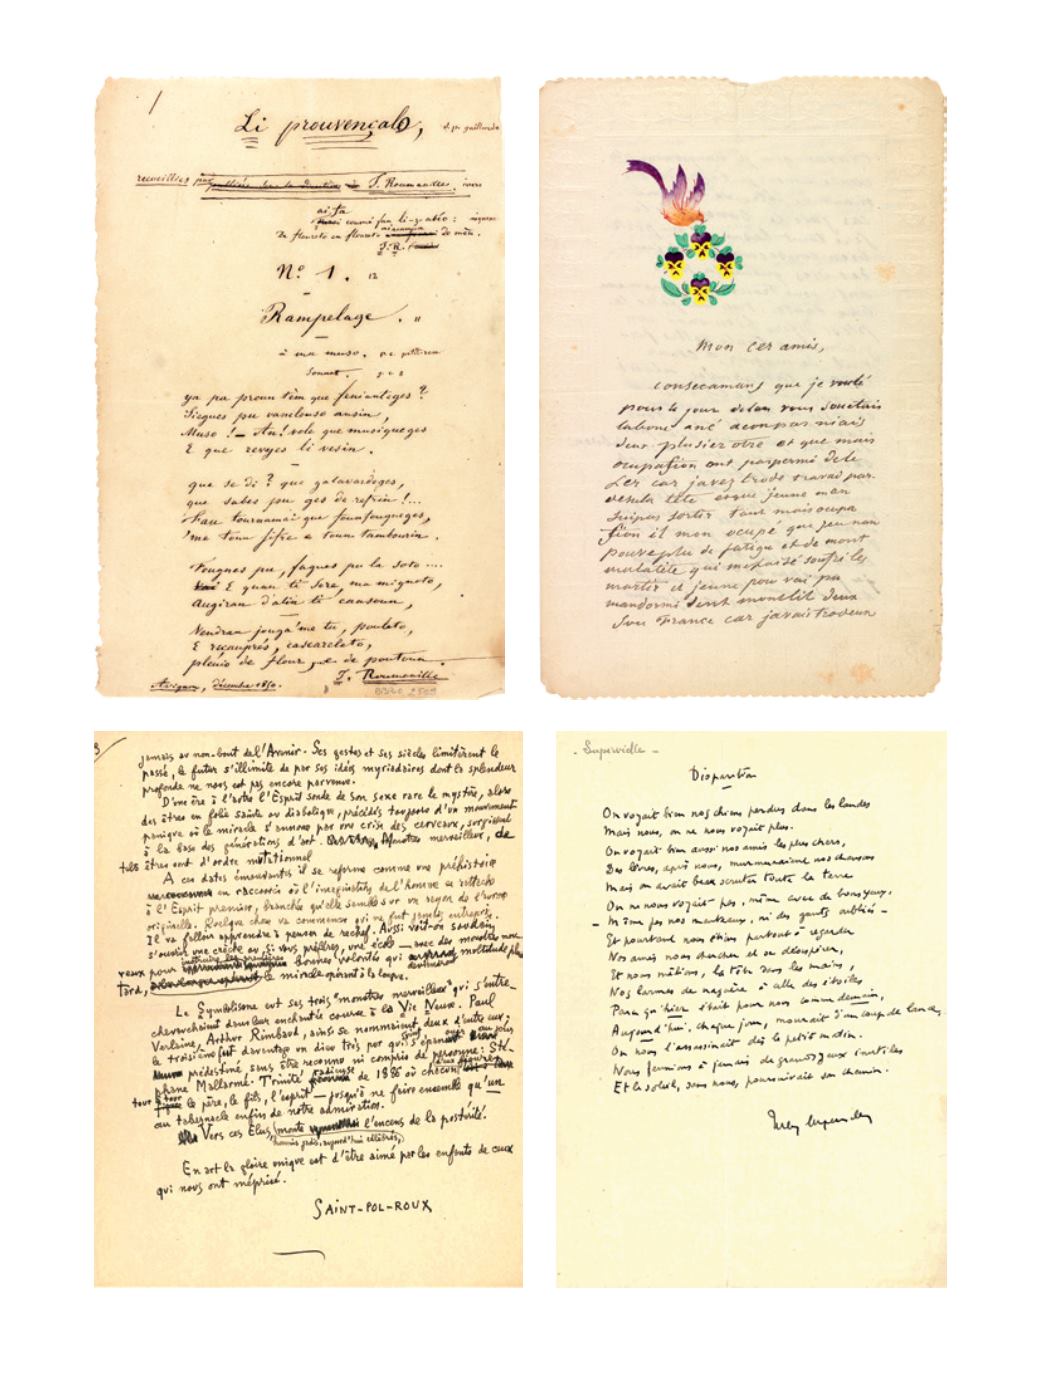 Li prouvençalo,
recueillies par J. Roumanille.
aito
coumé fan li-z-abéo :
De floureto en floureto de mèu.
J. R.
N° 1. 12
Rampelage . "
à ma muso.
Sonnet.
ya pa proun tèm que fenianteges ?
Siegues pu vanelouso ansin,
Muso ! — An ! vole que musiqueges
E que revejes li vesin.
que se di ? que galavardeges,
que sabes pu ges de refrin !...
Fau tournamai que founfougneges,
'me toun fifre e toun tambourin.
Fougnes pu, fagues pu la soto ....
E quan ti sore, ma mignoto,
Augiran d'atin ti cansoun,
Vendran jouga'me tu, pouleto,
E reçaupres, cascareleto,
pleno de flour, de poutoun.
J. Roumanille
Avignon, décembre 1850.
Mon cer amis,
consecamans que je voulé
pour le jour delan vous souetais
labone ané
deux plusier otre et que mais
ocupasion ont paspermi dele
Ler car javez trode travai par.
desula tête esque jeune man
suipas sortir tant mais ocupa
sion il mon ocupé que jeu nan
pouveplu de fatigu et de mont
malatéte qui mefaisé soufri les
martir et jeune pouvai pa
mandormi dent monclit deux
Sou France car javais trodeun
3/
jamais au non-bout de l'Avenir. Ses gestes et ses siècles limitèrent le
passé, le futur s'illimite de par ses idées myriadaires dont la splendeur
profonde ne nous est pas encore parvenue.
D'une ère à l'autre l'Esprit sonde de son sexe rare le mystère, alors
des êtres en folie sainte ou diabolique, précédés toujours d'un mouvement
panique où le miracle s'annonce par une crise des cerveaux, surgissent
à la base des générations d'art. Monstres merveilleux, de
tels êtres sont d'ordre mutationnel
A ces dates émouvantes il se reforme comme une préhistoire
en raccourci où l'imaginatif de l'homme se rattache
à l'Esprit premier, branchée qu'elle semble sur un rayon de l'aurore
originelle. Quelque chose va commencer qui ne fut jamais entrepris.
Il va falloir apprendre à penser de rechef. Aussi voit-on soudain
s'ouvrir une crèche ou, si vous préférez, une école — avec des monstres nou-
veaux pour instruire les premières bonnes volontés qui deviendront multitude plus
tard, le miracle opérant à la longue.
Le Symbolisme eut ses trois "monstres merveilleux" qui s'entre-
chevauchaient dans leur enchantée course à la Vie Neuve. Paul
Verlaine, Arthur Rimbaud, ainsi se nommaient deux d'entre eux ;
le troisième fut davantage un dieu très pur qui
prédestiné sans être reconnu ni compris de personne : Sté-
phane Mallarmé. Trinité radieuse de 1886 où chacun
tour à tour le père, le fils, l'esprit — jusqu'à ne faire ensemble qu'un
au tabernacle enfin de notre admiration.
Vers ces Élus, (honnis jadis, aujourd'hui célébrés,) monte l'encens de la postérité.
En art la gloire unique est d'être aimé par les enfants de ceux
qui nous ont méprisé.
SAINT-POL-ROUX
. Supervielle -
Disparition
On voyait bien nos chiens perdus dans les landes
Mais nous, on ne nous voyait plus.
On voyait bien aussi nos amis les plus chers,
Des lèvres, après nous, murmuraient nos chansons
Mais on avait beau scruter toute la terre
On ne nous voyait pas, même avec de bons yeux.
- Même pas nos manteaux, ni des gants oubliés -
Et pourtant nous étions partout à regarder
Nos amis nous chercher et se désespérer,
Et nous mêlions, la tête dans les mains,
Nos larmes de naguère à celle des étoiles
Parce qu'hier était pour nous comme demain,
Aujourd'hui, chaque jour, mourait d'un coup de lance.
On nous l'assassinait dès le petit matin.
Nous fermions à jamais de grands yeux inutiles
Et le soleil, sans nous, poursuivait son chemin.
Jules Supervielle